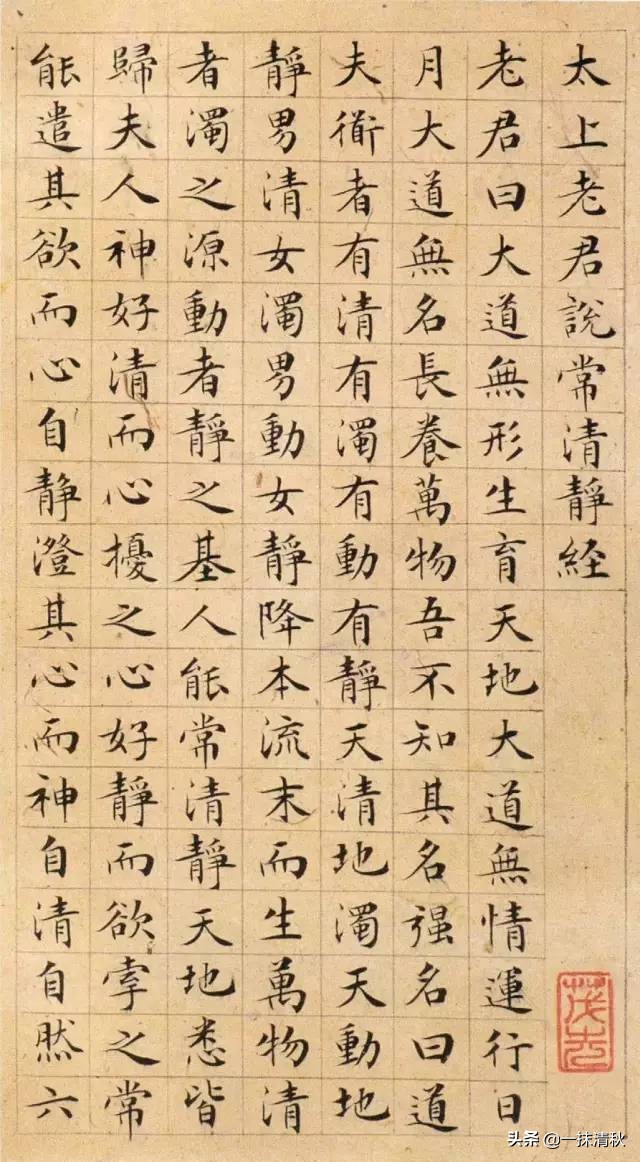 太上老君說常清靜經
老君曰大道無形生育天地大道無情運行日
月大道無名長養萬物吾不知其名强名曰道
夫衜者有清有濁有動有靜天清地濁天動地
靜男清女濁男動女靜降本流末而生萬物清
者濁之源動者靜之基人能常清靜天地悉皆
歸夫人神好清而心擾之心好靜而欲牽之常
能遣其欲而心自靜澄其心而神自清自然六
头条 @一抹清秋